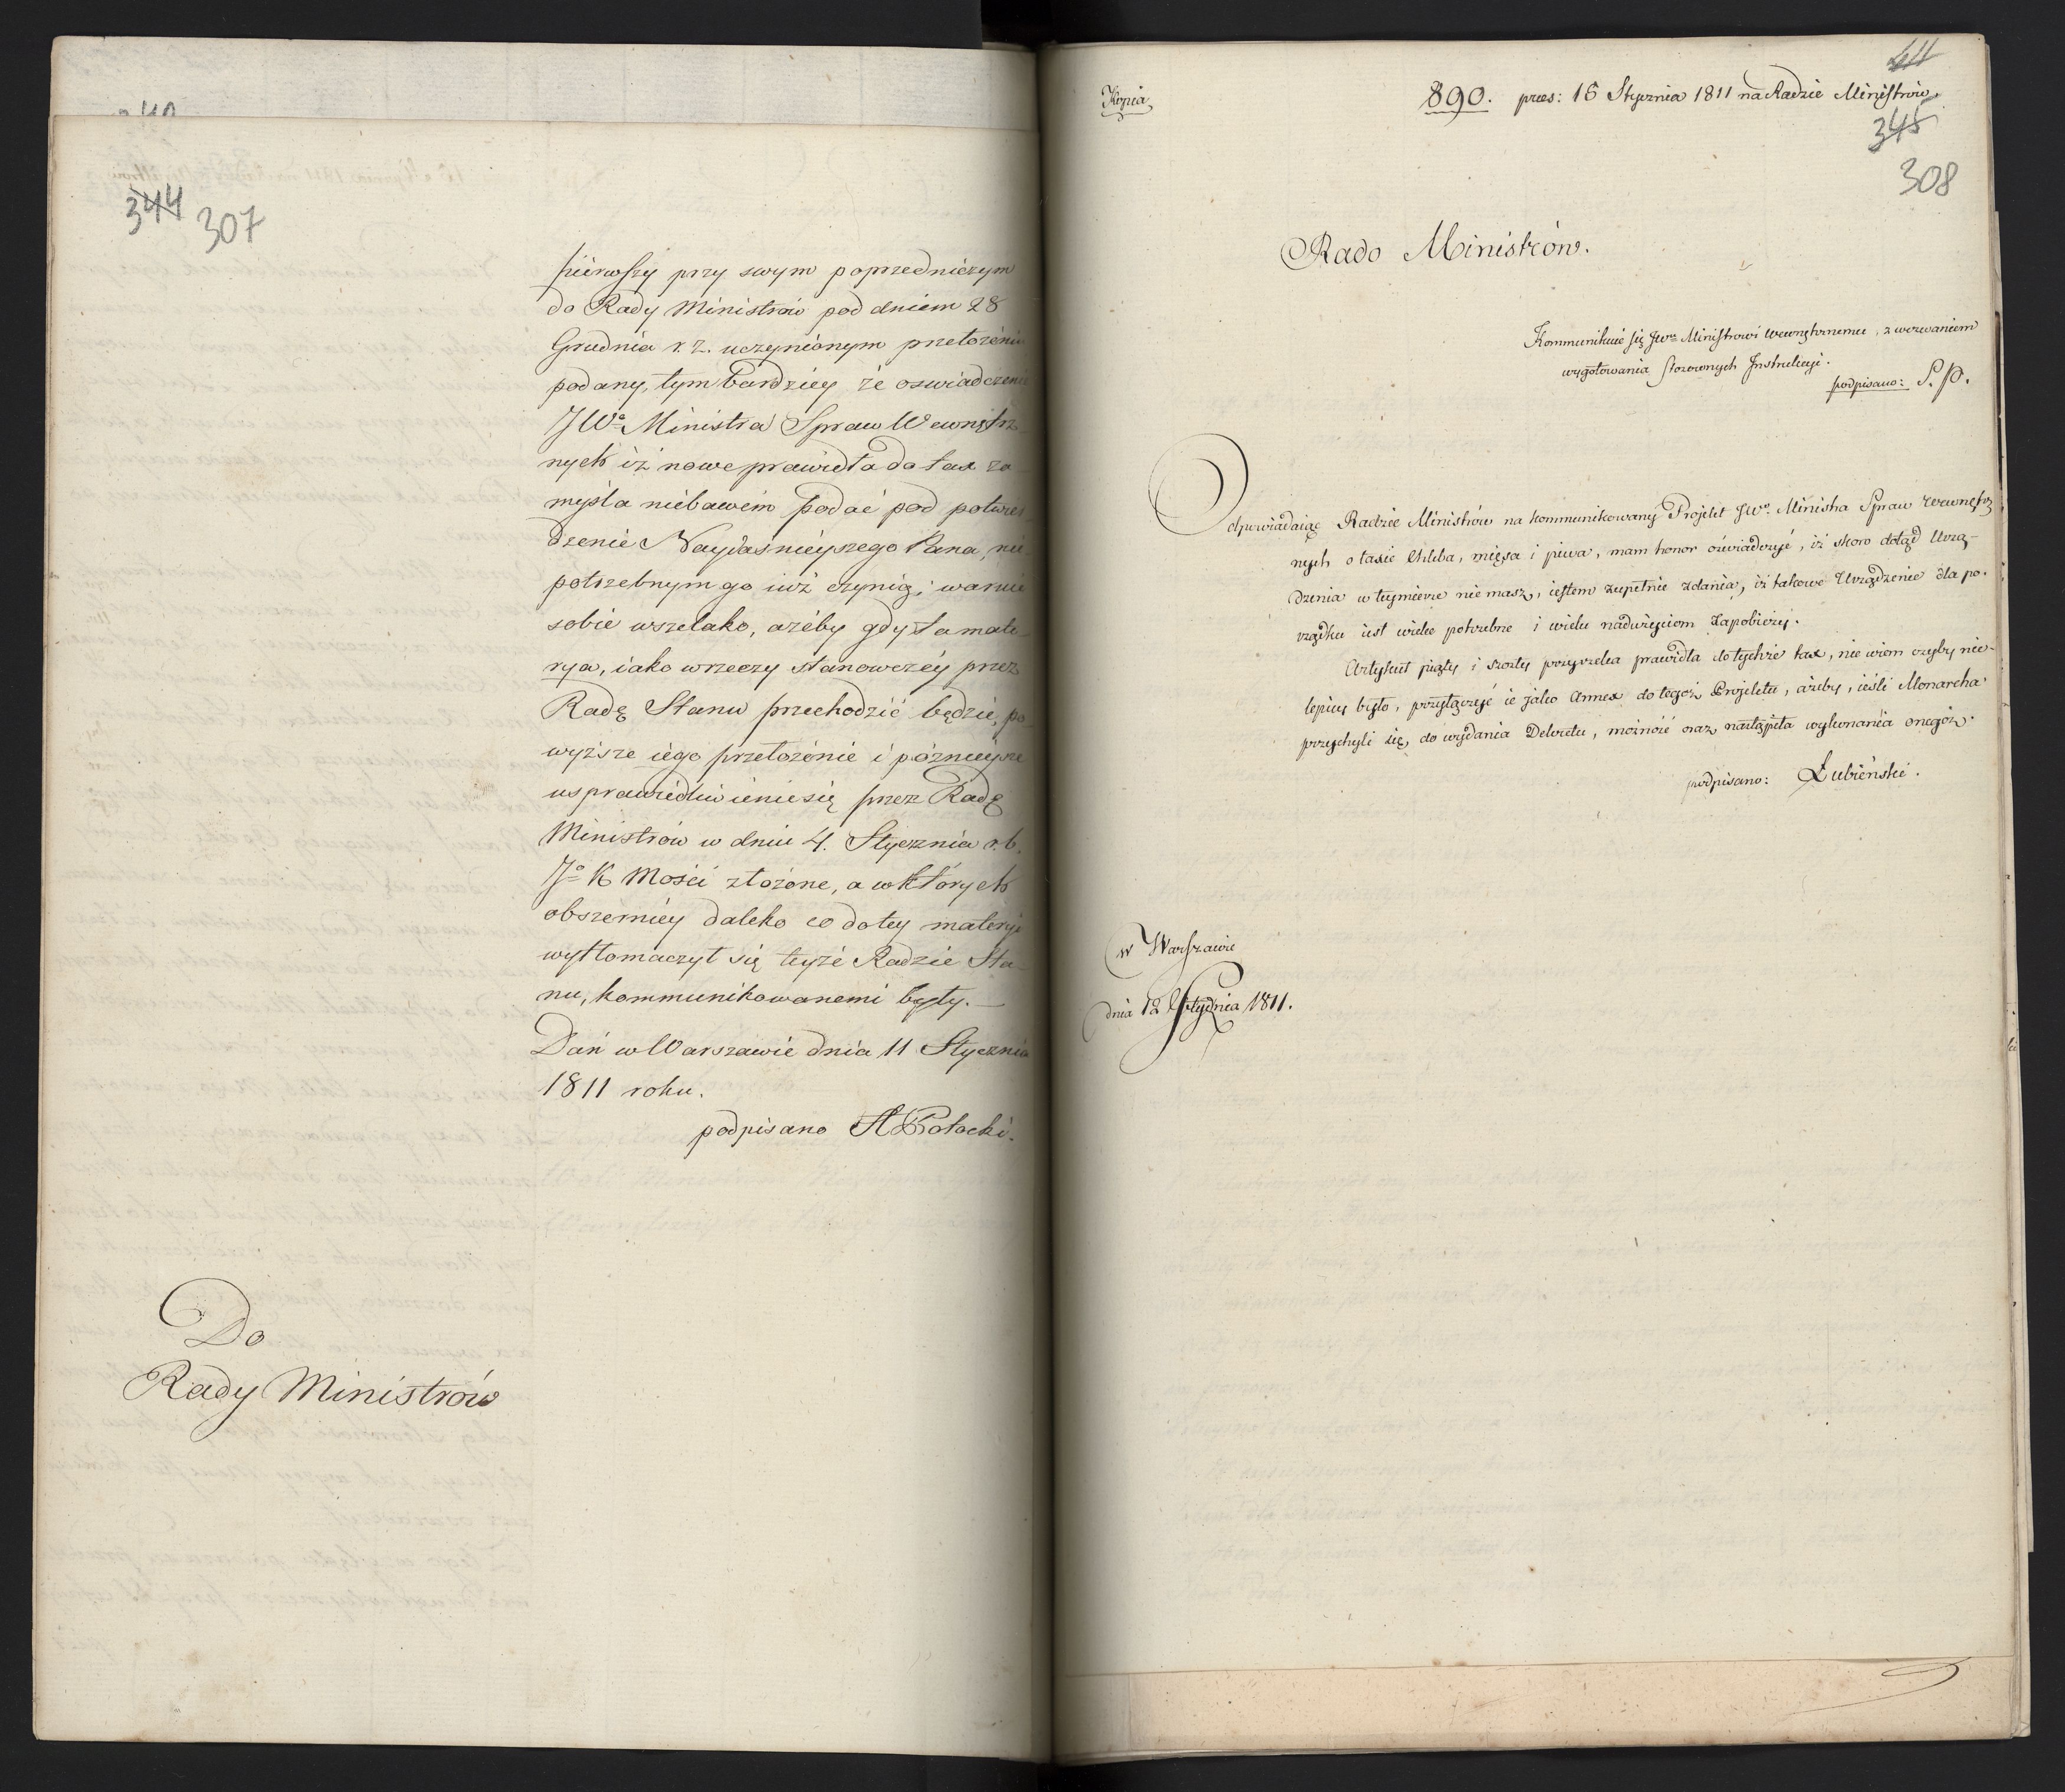 344 307
pierwszy przy swym poprzedniczym
do Rady Ministrów pod dniem 28
Grudnia r. z. uczynionym przełożeniu
podany, tym bardziey że oswiadczenie
JWo Ministra Spraw Wewnętrz-
nych iż nowe prawidła do tax za-
myśla niebawem podać pod potwier-
dzenie Nayjasnieyszego Pana, nie-
potrzebnym go iuż czynią; waruie
sobie wszelako, ażeby gdy ta mate-
rya, iako w rzeczy stanowczéy przez
Radę Stanu przechodzić będzie, po-
wyższe iego przełożenie i poznieysze
usprawiedliwienie się przez Radę
Ministrów w dniu 4. Stycznia r. b.
Jo K Mości złożone, a w których
obszerniey daleko co do tey materyi
wytłomaczył się teyże Radzie Sta-
nu, kommunikowanemi były.—
Dań w Warszawie dnia 11 Stycznia
1811 roku.
podpisano A Potocki.
Do
Rady Ministrów
Kopia
890. prez: 16 Stycznia 1811 na Radzie Ministrów.
345
308
Rado Ministrów.
Kommunikuie się JWu Ministrowi Wewnętrznemu, z wezwaniem
wygotowania stosownych Instrukcyi.
podpisano: S. P.
Odpowiadaiąc Radzie Ministrów na kommunikowany Projekt JWo Ministra Spraw Wewnętrz
nych o taxie Chleba, mięsa i piwa, mam honor oświadczyć, iż skoro dotąd Urzą-
dzenia w teymierze nie masz, iestem zupełnie zdania, iż takowe Urządzenie dla po-
rządku iest wielce potrzebne i wielu nadużyciom zapobieży.
Artykuł piąty i szósty przyrzeka prawidła do tychże tax, nie wiem czyby nie-
lepiey było, przyłączyć ie jako Annex do tegoż Projektu, ażeby, ieśli Monarcha
przychyli się do wydania Dekretu, możność oraz nastąpiła wykonania onegoż.
podpisano: Łubieński.
w Warszawie
dnia 12 Stycznia 1811.